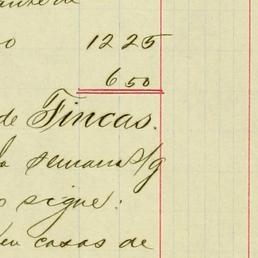 o 1225
650
de Fincas.
la semana s/g
o sigue:
en casas de